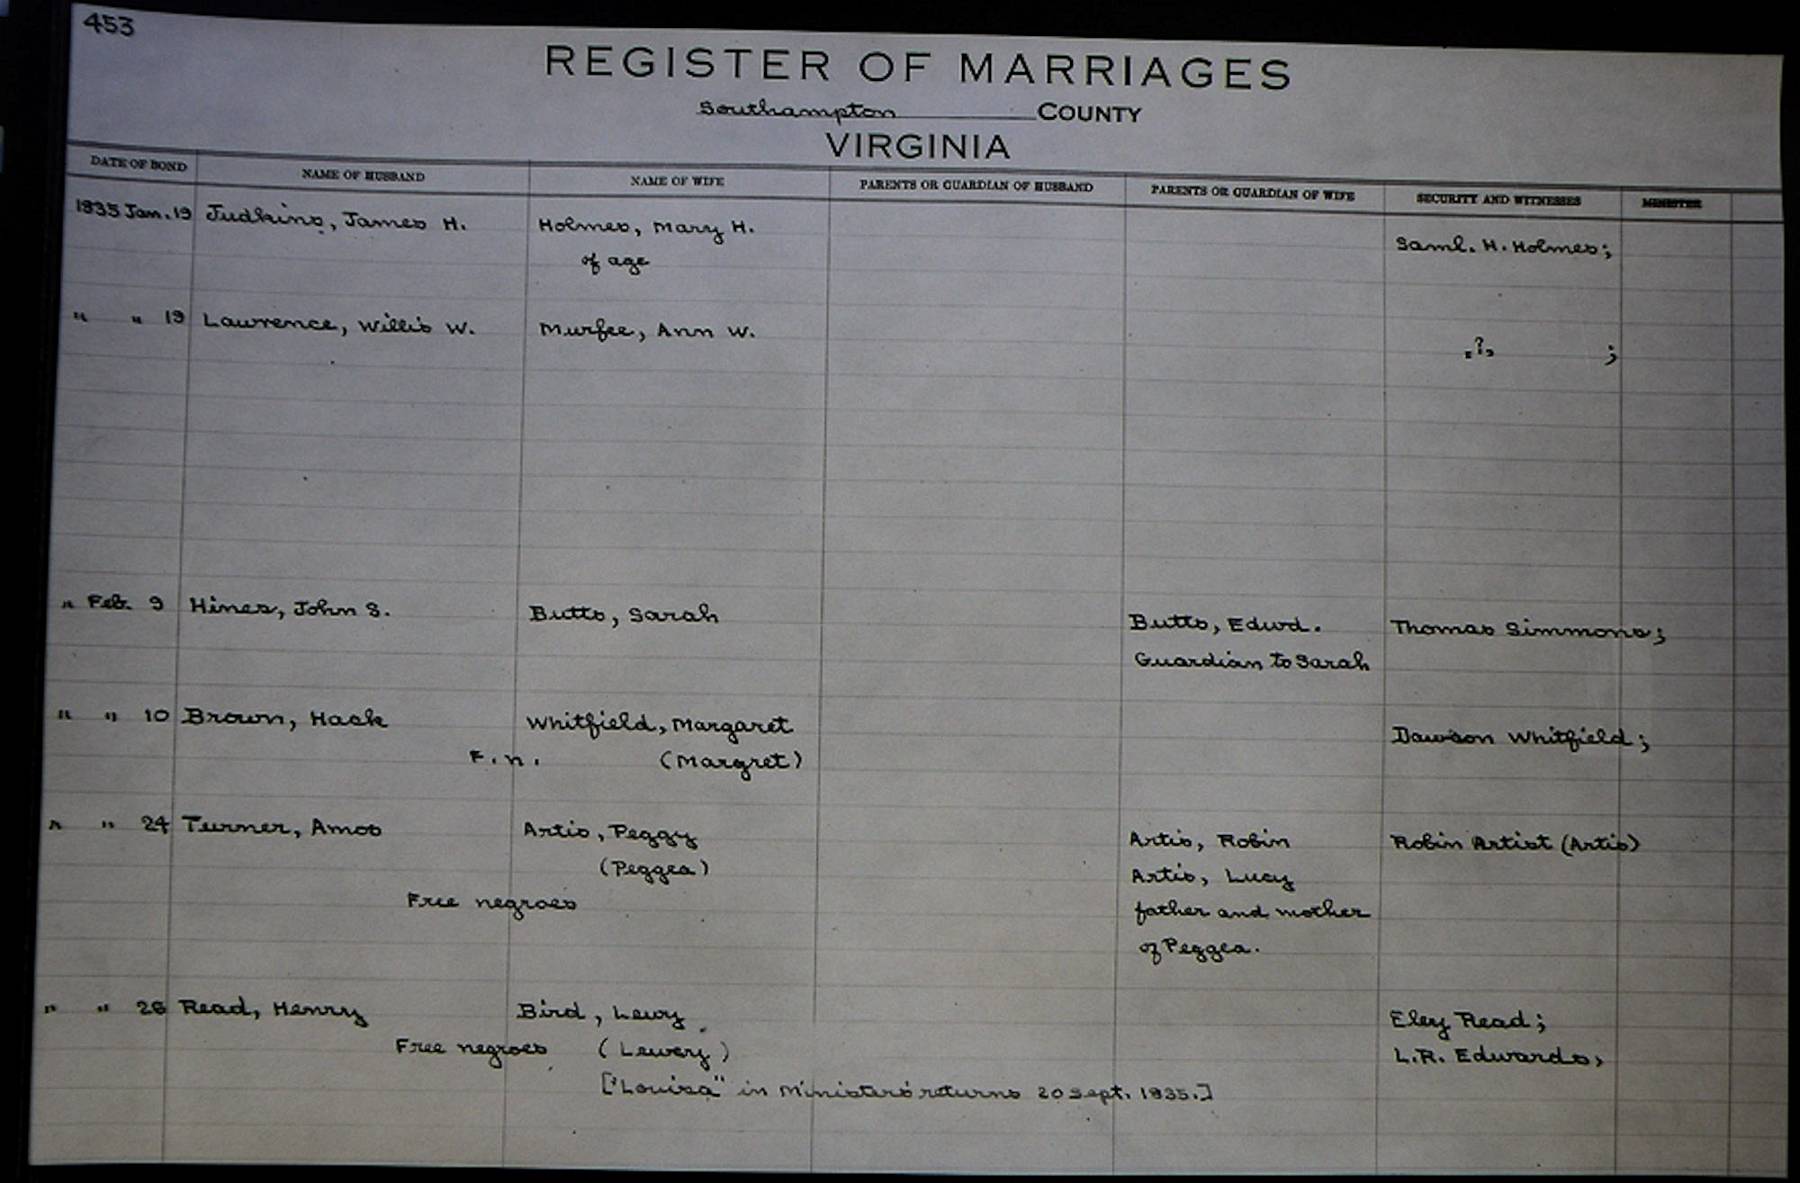 453
REGISTER OF MARRIAGES
Southampton COUNTY
VIRGINIA
DATE OF BOND NAME OF HUSBAND NAME OF WIFE PARENTS OR GUARDIAN OF HUSBAND PARENTS OR GUARDIAN OF WIFE SECURITY AND WITNESSES MINISTER
1835 Jan. 19 Judkins, James H. Holmes, Mary H. Saml. H. Holmes;
of age
" " 19 Lawrence, Willis W. Murfee, Ann W. "?" ;
" Feb. 9 Hines, John S. Butts, Sarah Butts, Edwd. Thomas Simmons;
Guardian to Sarah
" " 10 Brown, Hack Whitfield, Margaret Dawson Whitfield;
F. n. (Margret)
" " 24 Turner, Amos Artis, Peggy Artis, Robin Robin Artist (Artis)
(Peggea) Artis, Lucy
Free negroes father and mother
of Peggea.
" " 28 Read, Henry Bird, Lewy Eley Read;
Free negroes (Lewery) L.R. Edwards,
["Louisa" in Ministers' returns 20 Sept. 1835.]